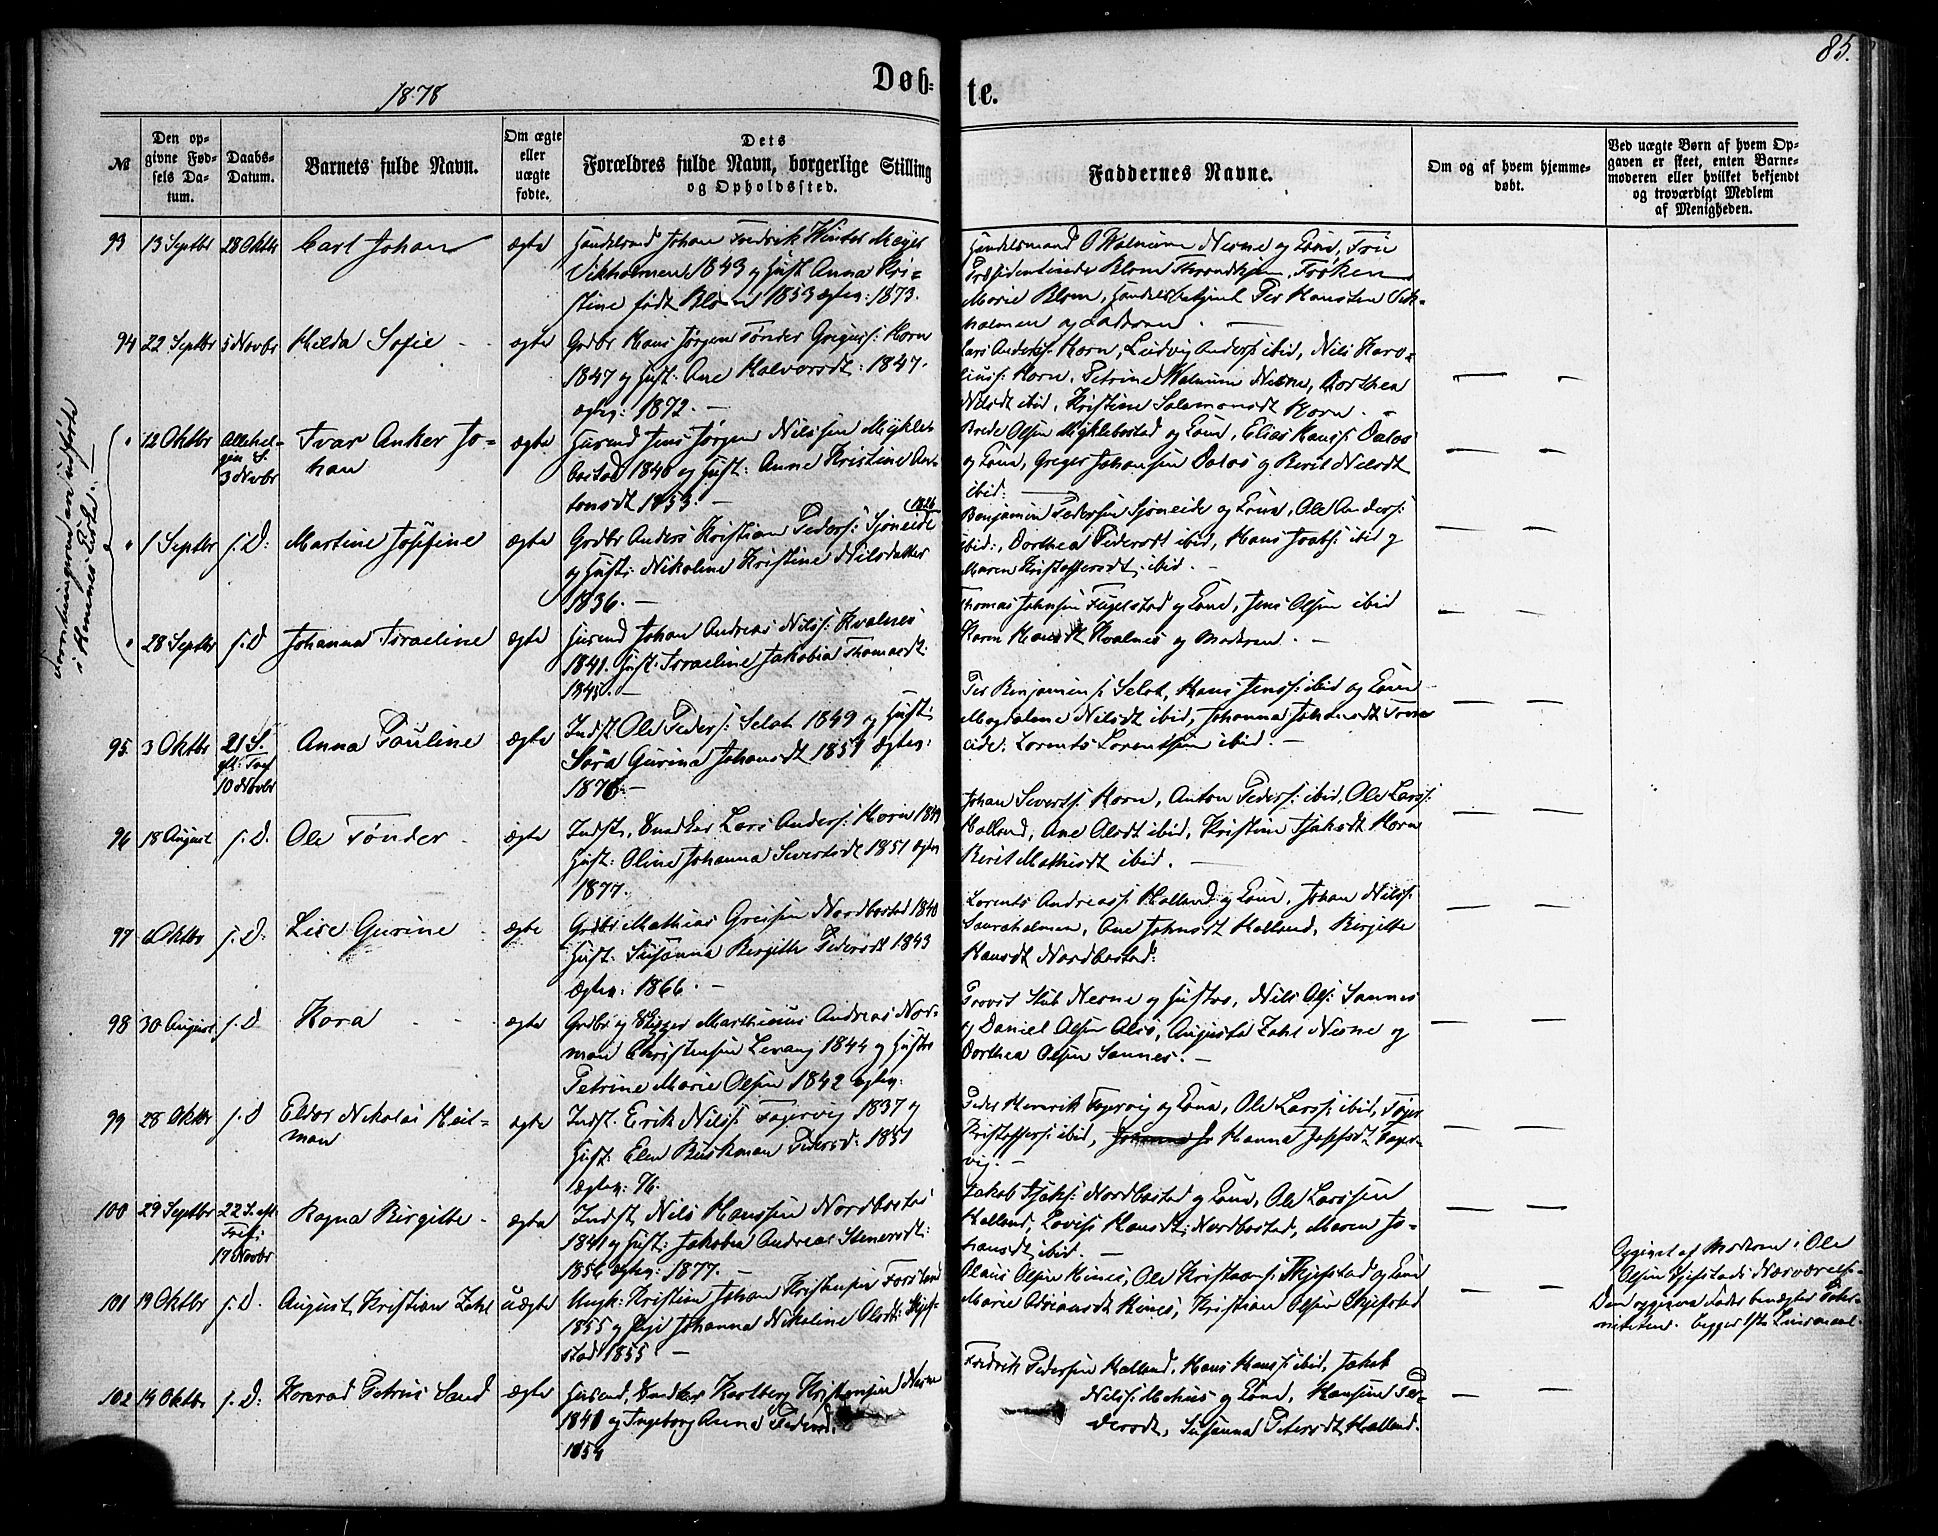 85.
1878
Døb-
te.
№
Den op-
givne Fød-
sels Da-
tum.
Daabs-
Datum.
Barnets fulde Navn.
Om ægte
eller
uægte
fødte.
Dets
Forældres fulde Navn, borgerlige Stilling
og Opholdssted.
Faddernes Navne.
Om og af hvem hjemme-
døbt.
Ved uægte Børn af hvem Op-
gaven er skeet, enten Barne-
moderen eller hvilket bekjendt
og troværdigt Medlem
af Menigheden.
93 13 Septbr 28 Oktbr Carl Johan ægte
Handelsmd Johan Fredrik Winter Meyer
Vikholmen 1843 og Hust Anna Kri-
stine født Blom 1853 ægtev: 1873.
Handelsmand O Walnum Nesne og Kone, Frue
Præsidentinde Blom Throndhjem, Frøken
Marie Blom, Handelsbetjent Per Hansen Vik-
holmen og Faderen. —
94 22 Septbr 5 Novbr Hilda Sofie ægte
Grdbr Hans Jørgen Tønder Gregers: Horn
1847 og Hust: Ane Halvorsdt: 1847.
ægtev: 1872. —
Lars Anderss: Horn, Ludvig Anderss ibid, Nils Karo-
liuss: Horn, Petrine Walnum Nesne, Dorthea
Nilsdt ibid, Kristine Salamonsdt Horn. —
i Hemnes Liste. —
12 Oktbr Allehel-
gen S.
3 Novbr
Ivar Anker Jo-
han
ægte
Husmd Jens Jørgen Nilssen Mykle-
bostad 1846 og Hust: Anne Kristine An-
tonsdt 1853. —
Brede Olsen Myklebostad og Kone, Elias Hanss: Dalos
og Kone, Greger Johansen Dalos og Berit Nilsdt
ibid:
1 Septbr s. D: Martine Josefine ægte
Grdbr Anders Kristian Peders: Sjøneide 1826
og Hust: Nikoline Kristine Nilsdatter
1836. —
Benjamin Pedersen Sjøneide og Kone, Ole Anderss:
ibid:, Dorthea Pedersdt ibid, Hans Joabs: ibid og
Maren Kristoffersdt ibid. —
28 Septbr s. D Johanna Israeline ægte
Husmd Johan Andreas Nilss: Kvalnes
1841. Hust: Israeline Jakobia Thomasdt:
1845. —
Thomas Johnsen Fugelstad og Kone, Jens Olsen ibid
Karen Hansdt Kvalnes og Moderen. —
95 3 Oktbr 21 S.
eft: Tref
10 Novbr
Anna Pauline ægte
Indst Ole Peders: Selot 1849 og Hust:
Sara Gurina Johansdt 1851 ægtev:
1876. —
Per Benjamins: Selot, Hans Jenss: ibid og Kone
Magdalene Nilsdt ibid, Johanna Johansdt
eide: Lorents Lorentsen ibid. —
96 18 August s. D. Ole Tønder ægte
Indst, Snedker Lars Anders: Horn 1849
Hust: Oline Johanna Sivertsdt 1851 ægtev
1877.
Johan Sivertss: Horn, Anton Peders: ibid, Ole Larss:
Halland, Ane Olsdt ibid, Kristine Isaksdt Horn
Berit Mathisdt ibid. —
97 6 Oktbr s. D: Lise Gurine ægte
Grdbr Mathias Greisen Nordbostad 1840
Hust: Susanna Birgitte Pedersdt 1843
ægtev: 1866. —
Lorents Andreass: Halland og Kone, Johan Nilss:
Sauraholmen, Ane Johnsdt Halland, Birgitte
Hansdt Nordbostad:
98 30 August s. D Kora ægte
Grdbr og Skipper Marthinus Andreas Nor-
man Christensen Levang 1844 og Hustr
Petrine Marie Olsen 1842 ægtev:
Provst Stub Nesne og Hustro, Nils Ols: Sannes
og Daniel Olsen Alsö, Augusta Zahl Nesne og
Dorthea Olsen Sannes. —
99 28 Oktbr s. D Eldor Nikolai Heit-
man
ægte
Indst: Erik Nilss: Fagervig 1837 og
Hust: Elen Buskman Pedersd: 1851
ægtev: 76.
Peder Henrik Fagervig og Kone, Ole Larss: ibid,
Kristoffers: ibid, Hanna Josefsdt Fager-
vig. —
100 29 Septbr 22 S. eft
Tref:
17 Novbr
Ragna Birgitte ægte
Indst, Nils Hanssen Nordbostad
1841 og Hust: Jakobia Andrea Stenersdt:
1856 ægtev: 1877. —
Jakob Isaks: Nordbostad og Kone, Ole Larssen
Halland, Lovise Hansdt: Nordbostad, Maren Jo-
hansdt ibid. —
101 19 Oktbr s. D. August Kristian Zahl uægte
Ungk: Kristian Johan Kristensen Forsland
1855 og Pige Johanna Nikoline Olsdt: Skjef-
stad 1855 —
Olaus Olsen Hines, Ole Kristians: Skjefstad og Kone
Marie Adriansdt Hines, Kristian Olsen Skjefstad
Opgivet af Moderen i Ole
Olsen Skjefstads Nærværelse.
Den opgivne Fader benægter Pater-
niteten. Begges 1ste Leiermaal.
102 14 Oktbr s. D: Konrad Petrus Sand ægte
Husmd, Snedker Karlberg Kristensen Nesne
1840 og Ingeborg Anna Pedersd.
1854
Fredrik Pedersen Halland, Hans Hanss: ibid, Jakob
Nilss: Mehus og Kone, Hansine Pe-
dersdt, Susanna Petersdt Halland.